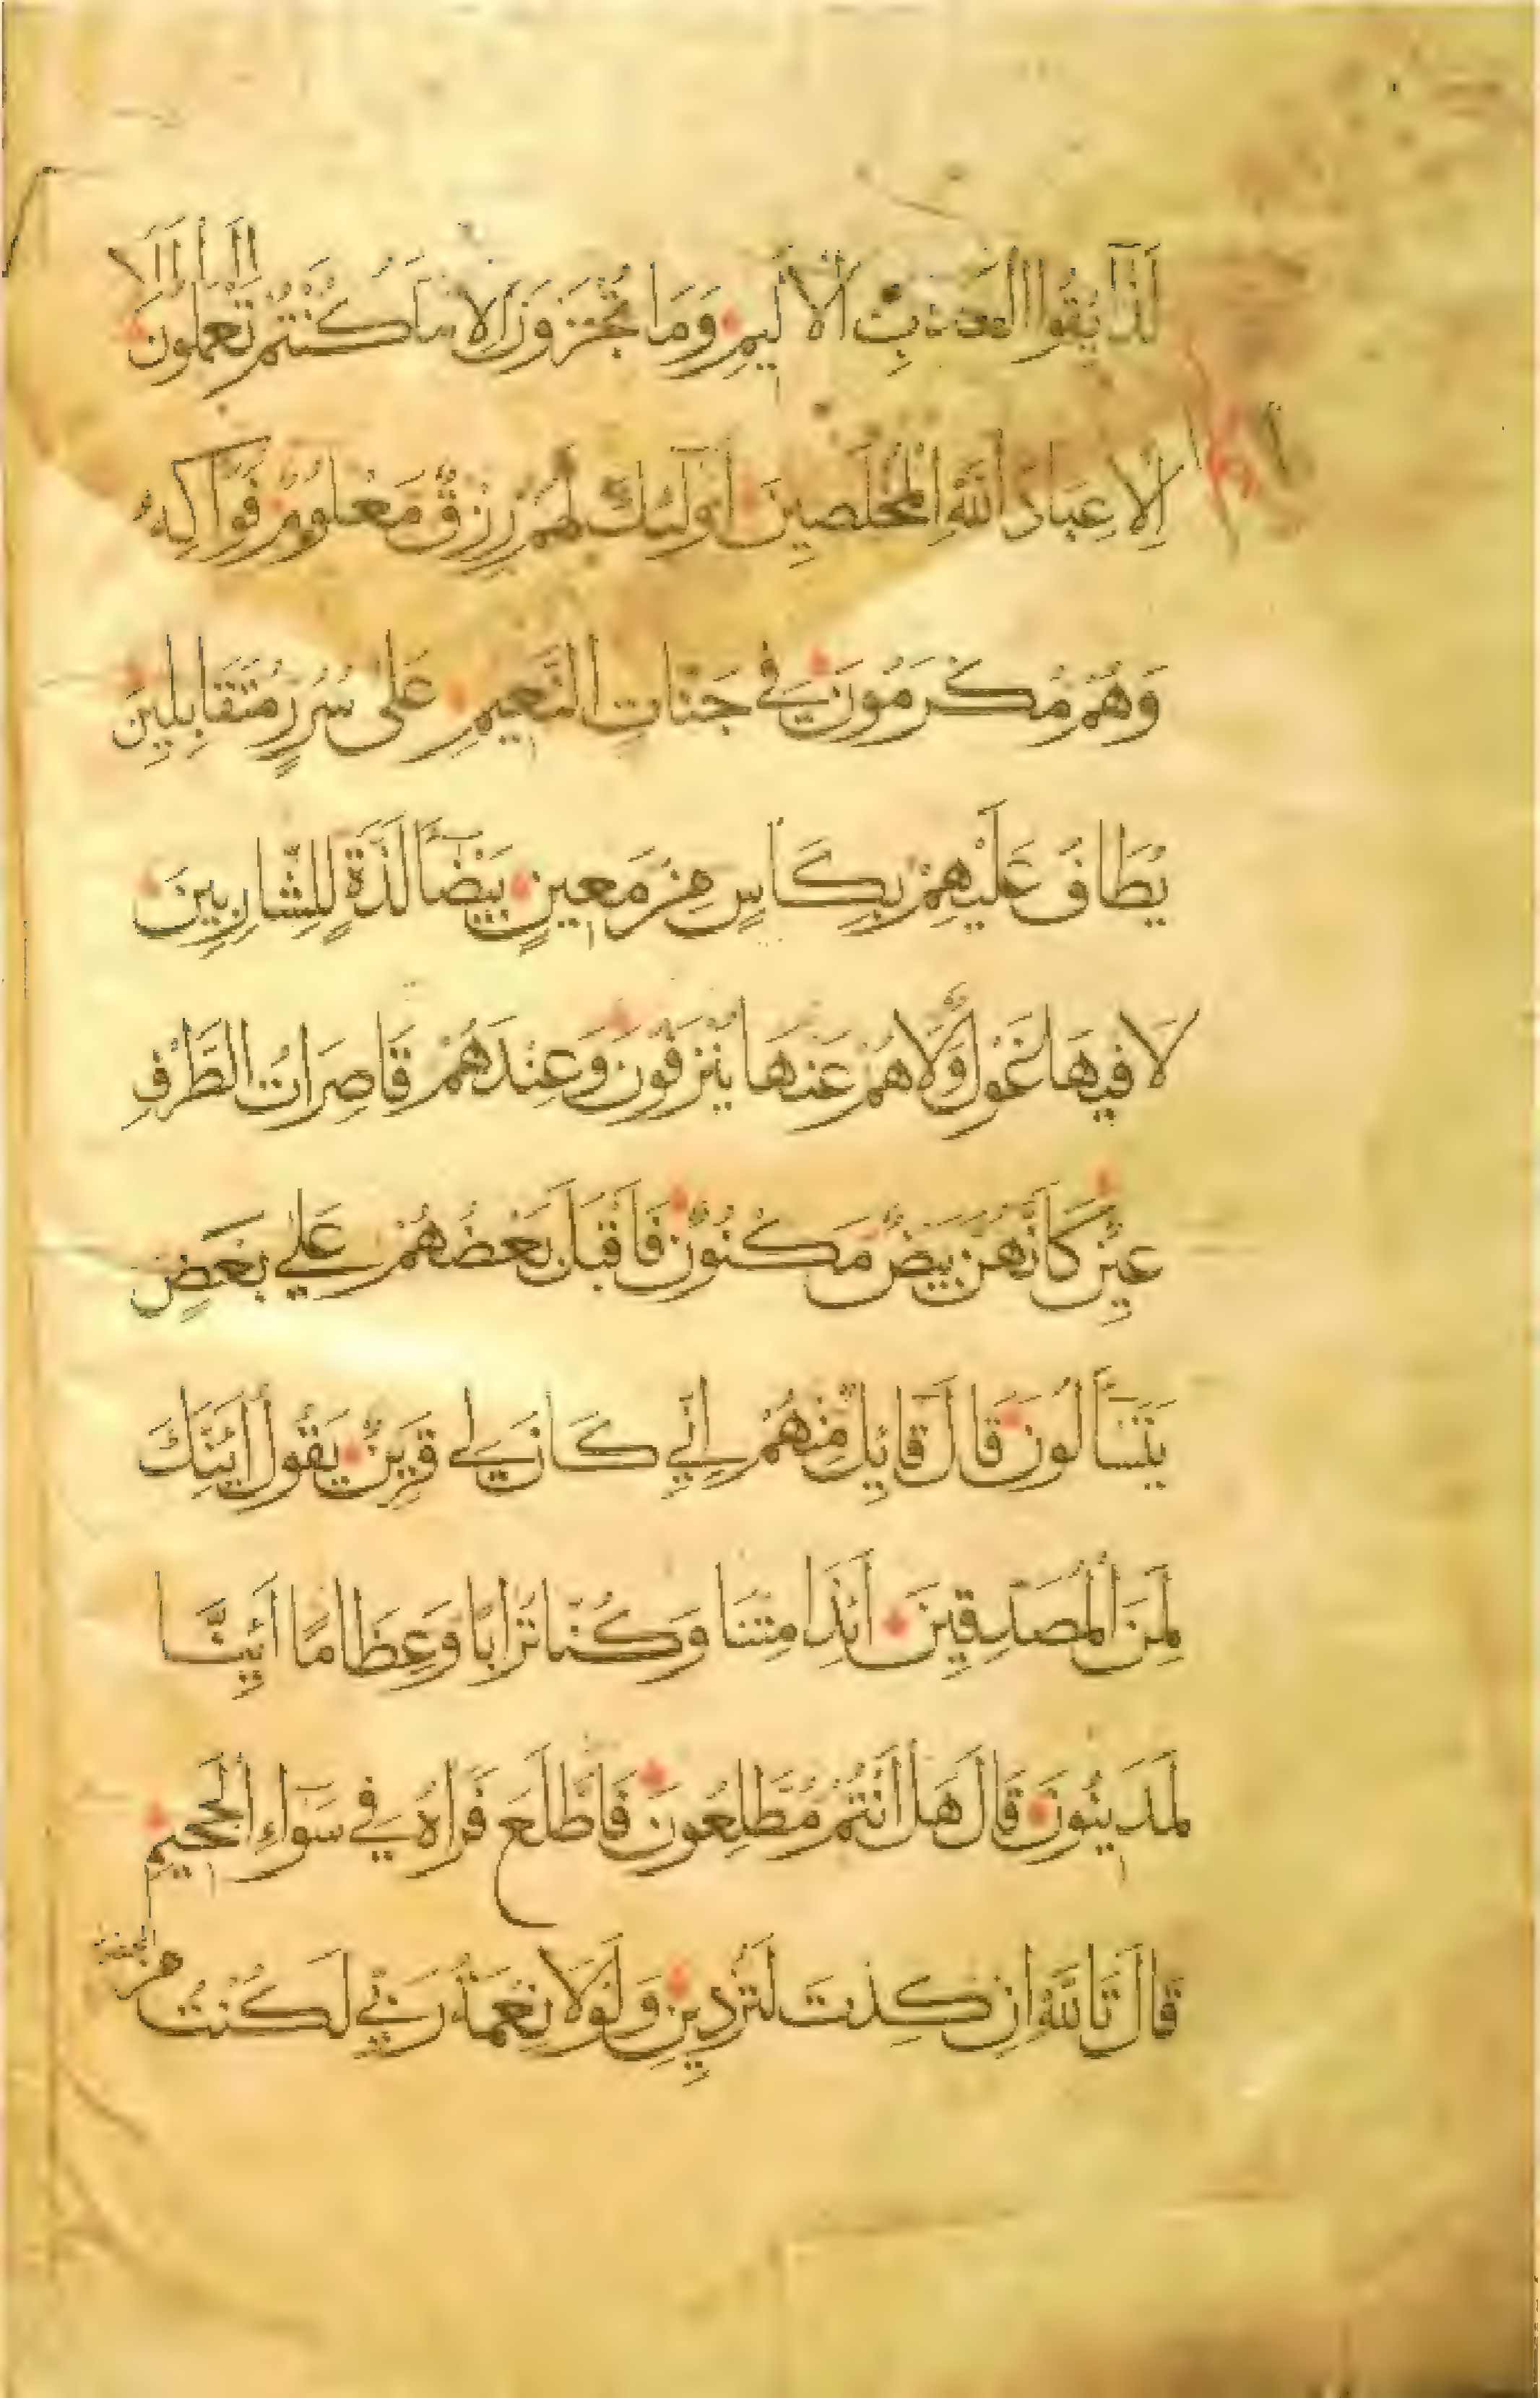 لَذَآيِقُوا الْعَذَابِ الْأَلِيمِ وَمَا تُجْزَوْنَ اِلَّا مَا كُنْتُمْ تَعْمَلُونَ
اِلَّا عِبَادَ اللّٰهِ الْمُخْلَصِينَ اُولَٓئِكَ لَهُمْ رِزْقٌ مَعْلُومٌ فَوَاكِهُ
وَهُمْ مُكْرَمُونَ فِي جَنَّاتِ النَّعِيمِ عَلَى سُرُرٍ مُتَقَابِلِينَ
يُطَافُ عَلَيْهِمْ بِكَاسٍ مِنْ مَعِينٍ بَيْضَآءَ لَذَّةٍ لِلشَّارِبِينَ
لَا فِيهَا غَوْلٌ وَّلَا هُمْ عَنْهَا يُنْزَفُونَ وَعِنْدَهُمْ قَاصِرَاتُ الطَّرْفِ
عِينٌ كَاَنَّهُنَّ بَيْضٌ مَكْنُونٌ فَاَقْبَلَ بَعْضُهُمْ عَلَي بَعْضٍ
يَتَسَآءَلُونَ قَالَ قَآيِلٌ مِنْهُمْ اِنِّي كَانَ لِي قَرِينٌ يَقُولُ اَئِنَّكَ
لَمِنَ الْمُصَدِّقِينَ اَئِذَا مِتْنَا وَكُنَّا تُرَابًا وَّعِظَامًا اَئِنَّا
لَمَدِينُونَ قَالَ هَلْ اَنْتُمْ مُطَّلِعُونَ فَاطَّلَعَ فَرَاٰهُ فِي سَوَآءِ الْجَحِيمِ
قَالَ تَاللّٰهِ اِنْ كِدْتَ لَتُرْدِينِ وَلَوْلَا نِعْمَةُ رَبِّي لَكُنْتُ مِنَ